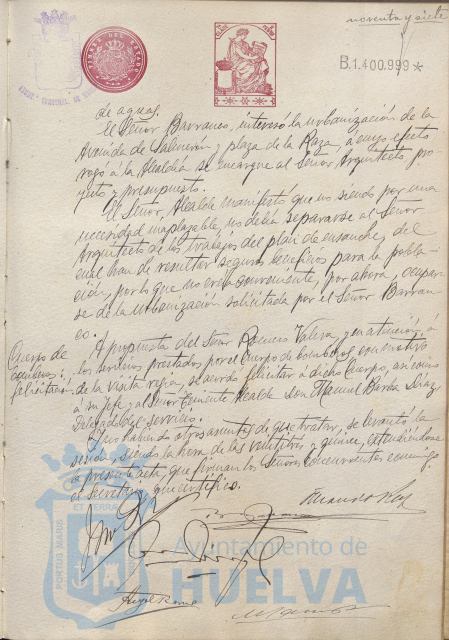 noventa y siete
TIMBRE DEL ESTADO
B.1.400.999*
de aguas.
El Señor Barranco, interesó la urbanización de la
Avenida de y plaza de la Raza, a cuyo efecto
rogó a la Alcaldía se encargue al Señor Arquitecto, pro-
yecto y presupuesto.
El Señor Alcalde manifestó que no siendo por una
necesidad inaplazable, no debía separarse al Señor
Arquitecto de los trabajos del plan de ensanche, del
cual han de resultar seguros beneficios para la pobla-
ción, por lo que no creía conveniente, por ahora, ocupar-
se de la urbanización solicitada por el Señor Barran-
co.
Cuerpo de
bomberos:
felicitación
A propuesta del Señor Romero y en atención á
los servicios prestados por el Cuerpo de bomberos con motivo
de la visita regia, se acordó felicitar a dicho Cuerpo, así como
á su Jefe y al Señor Teniente Alcalde Don Manuel Barba Díaz
Delegado del servicio.
Y no habiendo otros asuntos de que tratar, se levantó la
sesión, siendo la hora de las veintitres y quince, extendiéndose
la presente acta, que firman los Señores concurrentes conmigo
el Secretario que certifico.
PORTUS MARIS
ET TERRAE
Ayuntamiento de
HUELVA